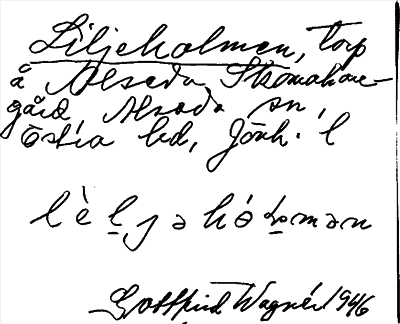 Liljeholmen, torp
å Alseda Skomakare-
gård, Alseda sn,
Östra hd, Jönk. l
lèljəhóləmən
Gottfrid Wagnér 1946